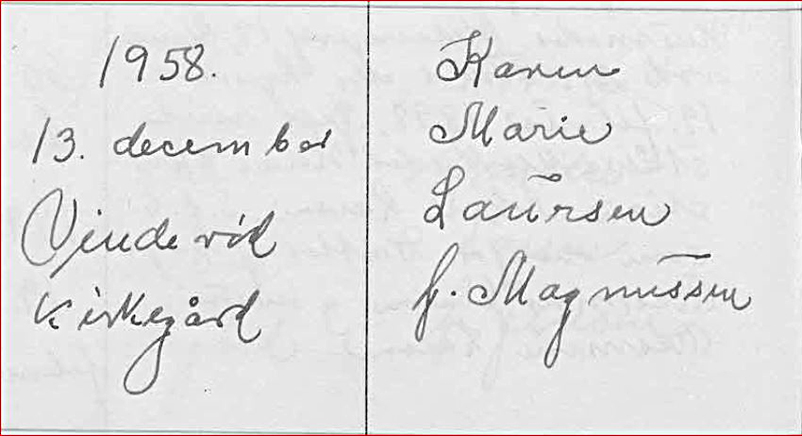 1958.
13. december
Vinderød
Kirkegård
Karen
Marie
Laursen
f. Magnussen